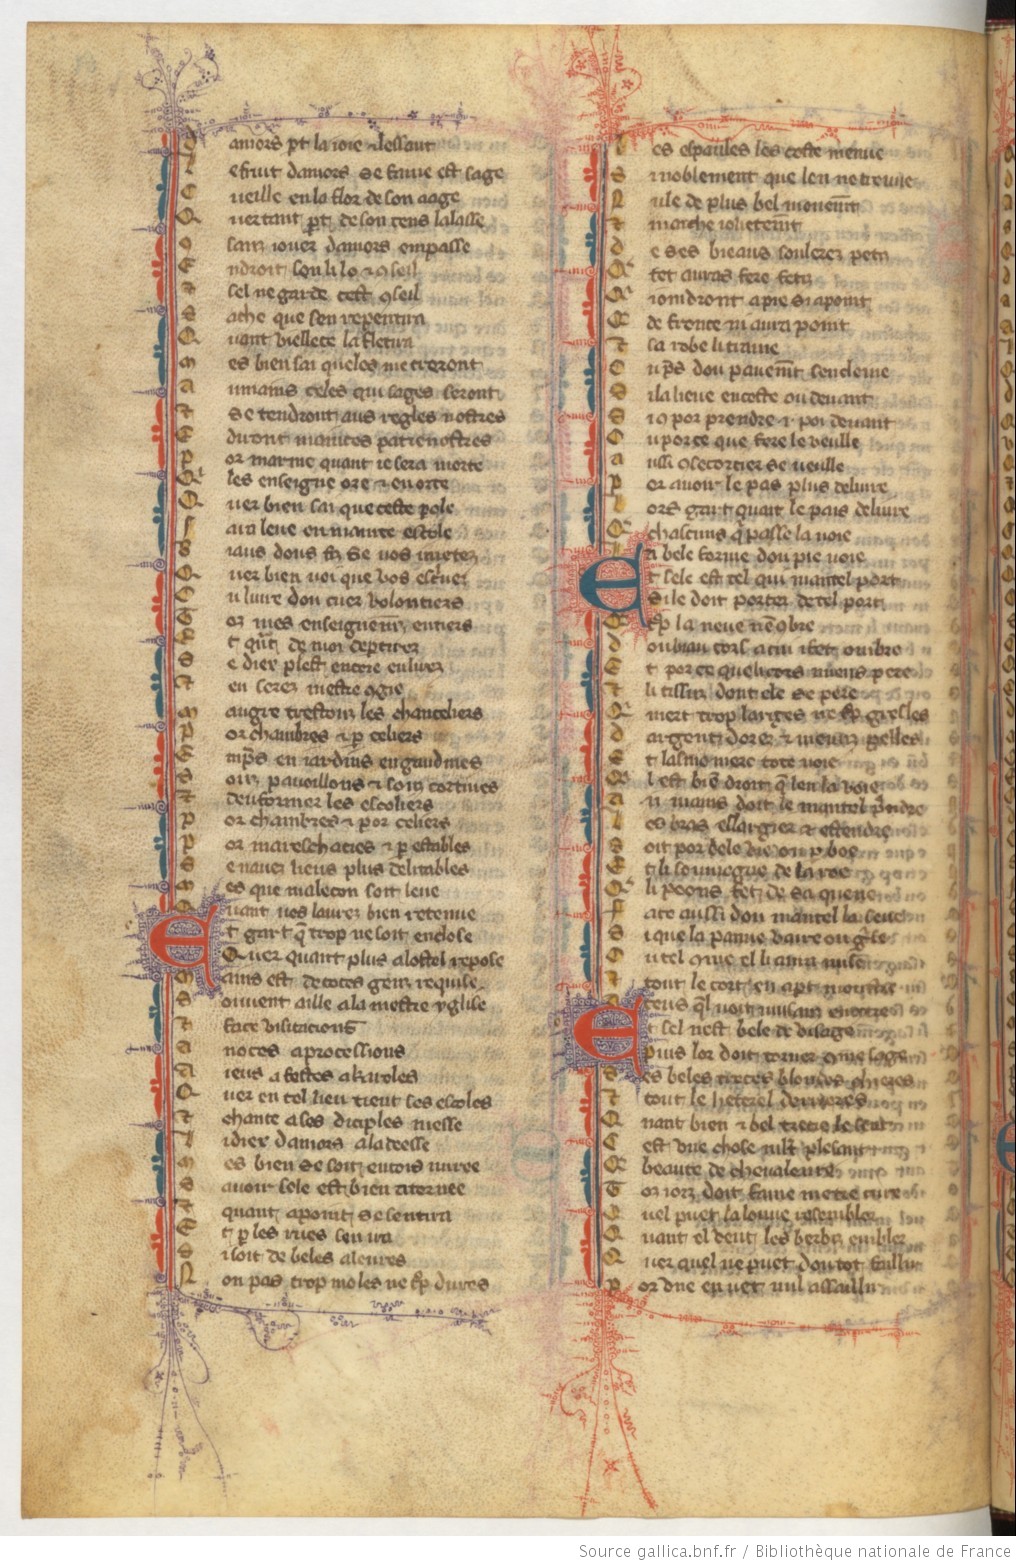 amors pt la ioie & lessaut
Le fruit damors se fame est sage
Cueille en la flor de son aage
Quer tant pt de son tens la lasse
sanz iouer damors en passe
Endroit
sel ne garde cest 9seil
sache que sen repentira
Quant viellece la fletira
mes bien sai queles me creront
aumains celes qui sages seront
& se tendront aus regles nostres
Et diront maintes patrenostres
por marme quant ie serai morte
Qui les enseigne ore & enorte
Quer bien sai que ceste pole
sera leue en mainte escole
Biaus dous
Quer bien voi que vos
ou livre dou cuer volontiers
por mes enseignemenz entiers
Et
se dier plest encore
en serez mestre
maugre trestouz les chanceliers
por chambres & p celiers
en iardins en gaudines
soiz pavoillons & soiz cortines
& denformer les escoliers
por chambres & por celiers
por mareschaucies & p estables
se navez lieus plus delitables
mes que malecon soit leue
Quant vos laurez bien retenue
Et gart q trop ne soit enclose
Quer quant plus a lostel repose
mains est de totes genz requise
souvent aille a la mestre yglise
& face visitacions
a noces a processions
a ieus a festes a karoles
Quer en tel lieu tient ses escoles
& chante a ses diciples messe
li dier damors & la deesse
mes bien se soit encois miree
savoir sele est bien atornee
& quant a point se sentira
Et p les rues sen ira
si soit de beles aleures
Non pas trop moles ne trop dures
les espaules les coste menue
si noblement que len ne treuve
Nule de plus bel movemt
& marche ioliement
de ses biaus soulerez petiz
Que fet auras fere fetiz
Qui ioindront a pie si a point
Que de fronce ni aura point
& sa robe li traine
Ou ps dou pavemt sencline
si la lieue encoste ou devant
si 9 por prendre & poi de vant
Ou por ce que fere le veulle
aussi 9 secorcier se veulle
por avoir le pas plus delivre
lors gart quait le pais delivre
Que chascuns q passe la voie
La bele forme dou pie voie
Et sele est tel qui mantel port
si le doit porter de tel port
Que trop la veue nencombre
dou biau cors a cui il fet ombre
Et por ce que li cors miens pere
& li tissuz dont ele se pere
Qui niert trop larges ne trop gresles
dargent dorez & menuz pelles
Et laumoniere tote voie
Quil est bien droit q len la voie
a ii mains doit le mantel prendre
les bras eslargier & estendre
soit por bele vie ou p boe
& li souviegne de la roe
Que li peons fet de sa queue
face aussi dou mantel la seue
si que la panne vaire ou grise
ou tel 9me el li aura mise
& tout le cors en apt moustre
a ceus
Et sel nest bele de visage
plus lor doit torner 9me sage
ses beles treces blondes chieres
& tout le heterel derrieres
Quant bien & bel trecie le sent
Cest une chose mlt plesant
Que beaute de cheveleure
Tor iorz doit fame metre cure
Quel puet la louve resembler
Quant el veut les berbiz embler
Quer quel ne puet dou tot faillir
por une en vet mil assaillir